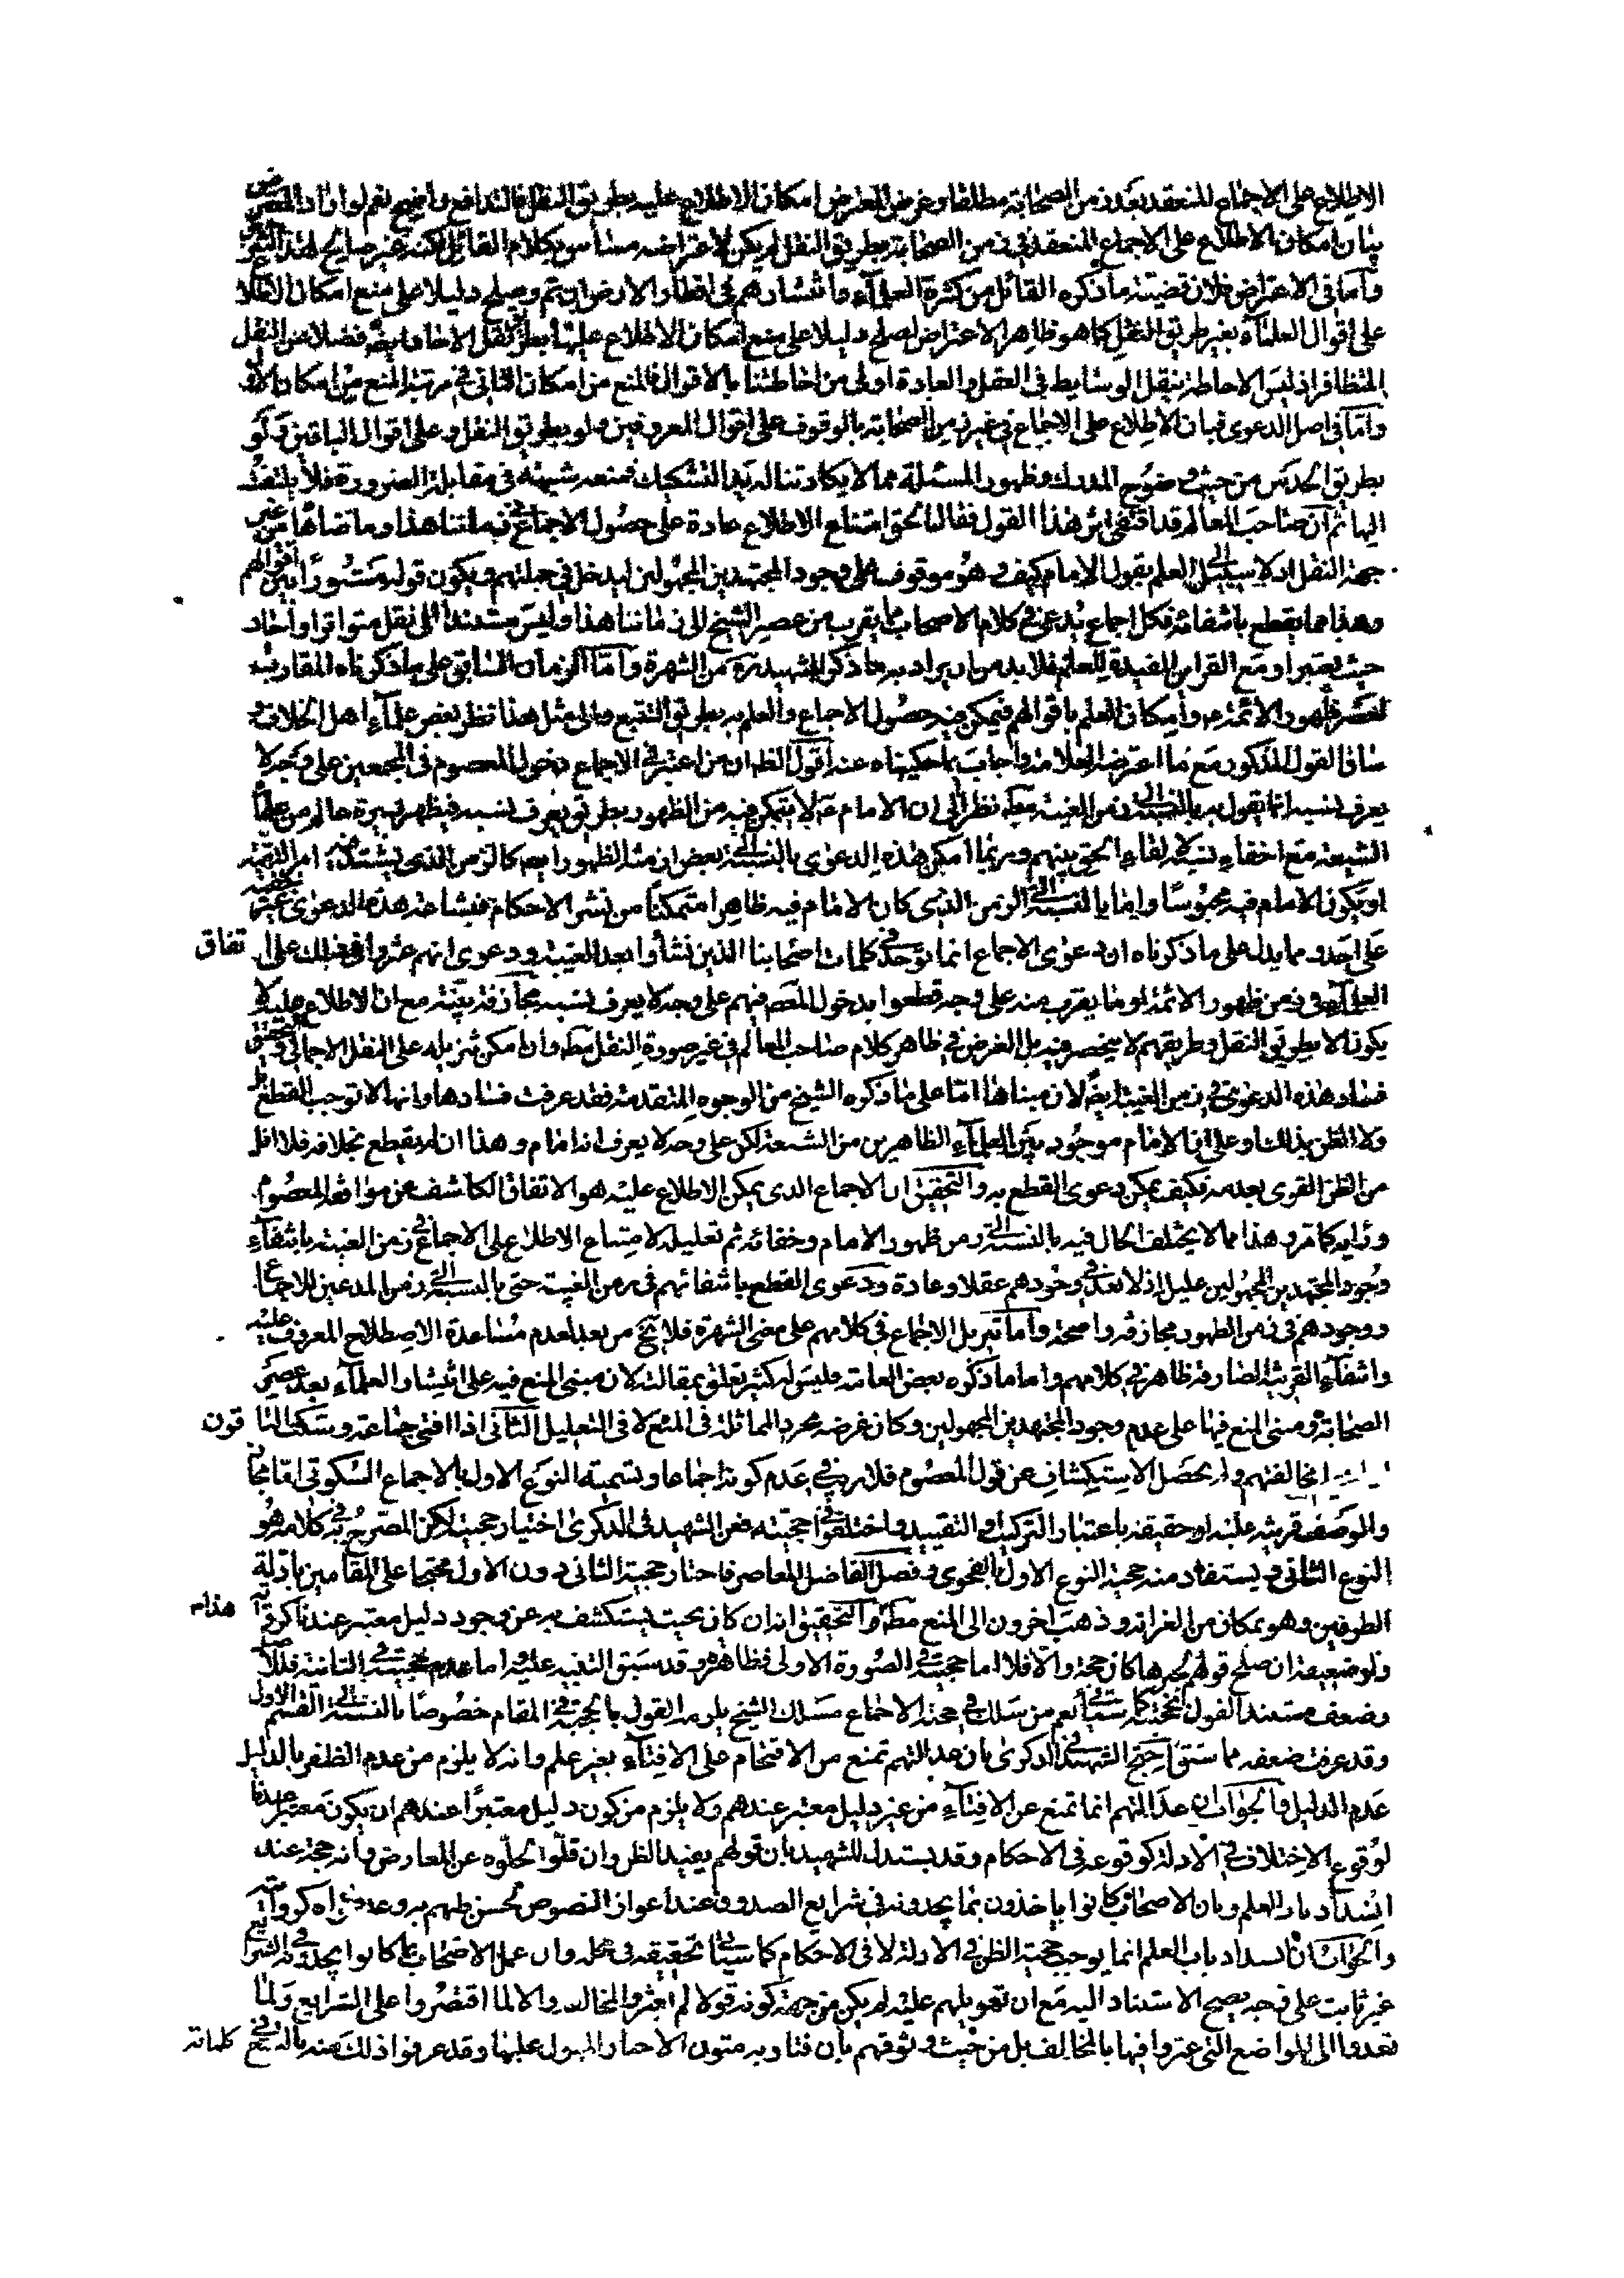 الاطلاع على الاجماع المنعقد بعد زمن الصحابة مطلقا وغرض المعترض امكان الاطلاع عليه بطريق النقل فالتدافع واضح نعم لو اراد المعترض
بيان امكان الاطلاع على الاجماع المنعقد في زمن الصحابة بطريق النقل لم يكن لاعتراضه مساس بكلام القائل لكنه غير صالح لهذا
واما في الاعتراض فلان قضية ما ذكره القائل من كثرة العلماء وانتشارهم في اقطار الارض ان يتم ويصلح دليلا على منع امكان الاطلاع
على اقوال العلماء بغير طريق النقل كما هو ظاهر الاعتراض لصلح دليلا على منع امكان الاطلاع عليها بطريق نقل الاحاد ايضا فضلا عن النقل
المتظافر اذ ليس الاحاطة بنقل الوسايط في العقل والعادة اولى من احاطتنا بالاقوال فالمنع من امكان الثاني في مرتبة المنع من امكان الاول
واما في اصل الدعوى فبان الاطلاع على الاجماع في غير زمن الصحابة بالوقوف على اقوال المعروفين ولو بطريق النقل وعلى اقوال الباقين ولو
بطريق الحدس من حيث وضوح المدرك وظهور المسئلة مما لا يكاد تناله يد التشكيك فمنعه شبهة في مقابلة الضرورة فلا يلتفت
اليها ثم ان صاحب المعالم قد اقتفى اثر هذا القول فقال الحق امتناع الاطلاع عادة على حصول الاجماع في زماننا هذا وما ضاهاه من غير
جهة النقل اذ لا سبيل الى العلم بقول الامام كيف وهو موقوف على وجود المجتهدين المجهولين ليدخل في جملتهم ويكون قوله مستورا بين اقوالهم
وهذا مما يقطع بانتفائه فكل اجماع يدعى في كلام الاصحاب مما يقرب من عصر الشيخ الى زماننا هذا وليس مستندا الى نقل متواتر او احاد
حيث يعتبر او مع القراين المفيدة للعلم فلا بد من ان يراد به ما ذكره الشهيد ره من الشهرة واما الزمان السابق على ما ذكرناه المقارب
لعصر ظهور الائمة ع وامكان العلم باقوالهم فيمكن فيه حصول الاجماع والعلم به بطريق التتبع والى مثل هذا نظر بعض علماء اهل الخلاف و
ساق القول المذكور مع ما اعترضه العلامة واجاب بما حكيناه عنه اقول الظ ان من اعتبر في الاجماع دخول المعصوم في المجمعين على وجه لا
يعرف بنسبه انما يقول به بالنسبة الى زمن الغيبة مط نظرا الى ان الامام ع لا يتمكن فيه من الظهور بطريق يعرف بنسبه فيظهر بهيئة عالم من علماء
الشيعة مع اخفاء نسبه لالقاء الحق بينهم وربما امكن هذه الدعوى بالنسبة الى بعض ازمنة الظهور ايضا كالزمن الذي يشتد فيه امر التقية
او يكون الامام فيه محبوسا واما بالنسبة الى الزمن الذي كان الامام فيه ظاهرا متمكنا من نشر الاحكام فبشاعة هذه الدعوى غير خفية
على احد ومما يدل على ما ذكرناه ان دعوى الاجماع انما توجد في كلمات اصحابنا الذين نشاوا بعد الغيبة ودعوى انهم عثروا في ذلك على اتفاق
العلماء في زمن ظهور الائمة او ما يقرب منه على وجه قطعوا بدخول المعصوم فيهم على وجه لا يعرف بنسبه مجازفة بينة مع ان الاطلاع عليه لا
يكون الا بطريق النقل وطريقهم لا ينحصر فيه بل الغرض في ظاهر كلام صاحب المعالم في غير صورة النقل مط وان امكن تنزيله على النقل الاجمالي والتحقيق
فساد هذه الدعوى في زمن الغيبة ايضا لان مبناها اما على ما ذكره الشيخ من الوجوه المتقدمة فقد عرفت فسادها وانها لا توجب القطع بل
ولا الظن بذلك او على ان الامام موجود بين العلماء الظاهرين من الشيعة لكن على وجه لا يعرف انه امام وهذا ان لم يقطع بخلافه فلا اقل
من الظن القوي بعدمه فكيف يمكن دعوى القطع به والتحقيق ان الاجماع الذي يمكن الاطلاع عليه هو الاتفاق الكاشف عن موافقة المعصوم
ورايه كما مر وهذا مما لا يختلف الحال فيه بالنسبة الى زمن ظهور الامام وخفائه ثم تعليله لامتناع الاطلاع على الاجماع في زمن الغيبة بانتفاء
وجود المجتهدين المجهولين عليل اذ لا بعد في وجودهم عقلا وعادة ودعوى القطع بانتفائهم في زمن الغيبة حتى بالنسبة الى زمن المدعين للاجماع
ووجودهم في زمن الظهور مجازفة واضحة واما تنزيل الاجماع في كلامهم على معنى الشهرة فلا يخ من بعد لعدم مساعدة الاصطلاح المعروف عليه
وانتفاء القرينة الصارفة ظاهر في كلامهم واما ما ذكره بعض العامة فليس له كثير تعلق بمقالته لان مبنى المنع فيه على انتشار العلماء بعد عصر
الصحابة ومبنى المنع فيها على عدم وجود المجتهدين المجهولين وكان غرضه مجرد المماثلة في المنع لا في التعليل الثاني اذا افتى جماعة وسكت الباقون
مخالفتهم ولم يحصل الاستكشاف عن قول المعصوم فلا ريب في عدم كونه اجماعا وتسمية النوع الاول بالاجماع السكوتي اما مجاز
والوصف قرينة عليه او حقيقة باعتبار التركيب والتقييد واختلفوا في حجيته فعن الشهيد في الذكرى اختيار حجيته لكن المصرح به في كلامه هو
النوع الثاني ويستفاد منه حجية النوع الاول بالفحوى وفصل الفاضل المعاصر فاختار حجية الثاني دون الاول محتجا على المقامين بادلة
الطرفين وهو بمكان من الغرابة وذهب اخرون الى المنع مط والتحقيق انه ان كان بحيث يستكشف به عن وجود دليل معتبر عندنا
ولو ضعيفة ان صلح قولهم لجبرها كان حجة والا فلا اما حجيته في الصورة الاولى فظاهرة وقد سبق التنبيه عليه واما عدم حجيته في الثانية فللاصل
وضعف مستند القول بالحجية كما سياتي نعم من سلك في حجية الاجماع مسلك الشيخ يلزمه القول بالحجية في المقام خصوصا بالنسبة الى القسم الاول
وقد عرفت ضعفه مما سبق احتج الشهيد في الذكرى بان عدالتهم تمنع من الاقتحام على الافتاء بغير علم وانه لا يلزم من عدم الظفر بالدليل
عدم الدليل والجواب ان عدالتهم انما تمنع عن الافتاء من غير دليل معتبر عندهم ولا يلزم من كون دليل معتبرا عندهم ان يكون معتبرا عندنا
لوقوع الاختلاف في الادلة كوقوعه في الاحكام وقد يستدل للشهيد بان قولهم يفيد الظن وان قلوا لخلوه عن المعارض وانه حجة عند
انسداد باب العلم وبان الاصحاب كانوا ياخذون بما يجدونه في شرايع الصدوق عند اعواز النصوص لحسن ظنهم به وعد فتواه كروايته
والجواب ان انسداد باب العلم انما يوجب حجية الظن في الادلة لا في الاحكام كما سياتي تحقيقه في محله وان عمل الاصحاب بما كانوا يجدونه في الشرايع
غير ثابت على وجه يصح الاستناد اليه مع ان تعويلهم عليه لم يكن من جهة كونه قولا لم يعثر والمخالف والا لما اقتصروا على الشرايع ولما
تعدوا الى المواضع التي عثروا فيها بالمخالف بل من حيث وثوقهم بان فتاويه متون الاخبار المعول عليها وقد عرفوا ذلك منه بالتتبع في كلماته